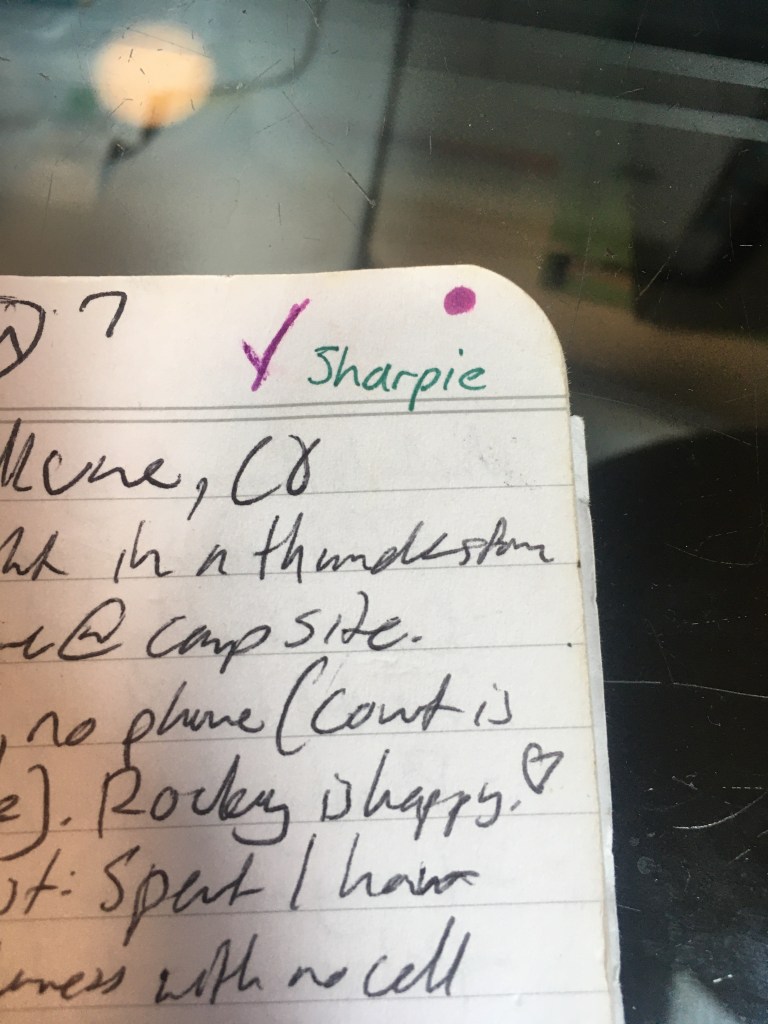 ?
Sharpie
in a thunderstorm
@ campsite.
, no phone (Court is
). Rocky is happy. ♡
st: Spent 1 hour
with no cell